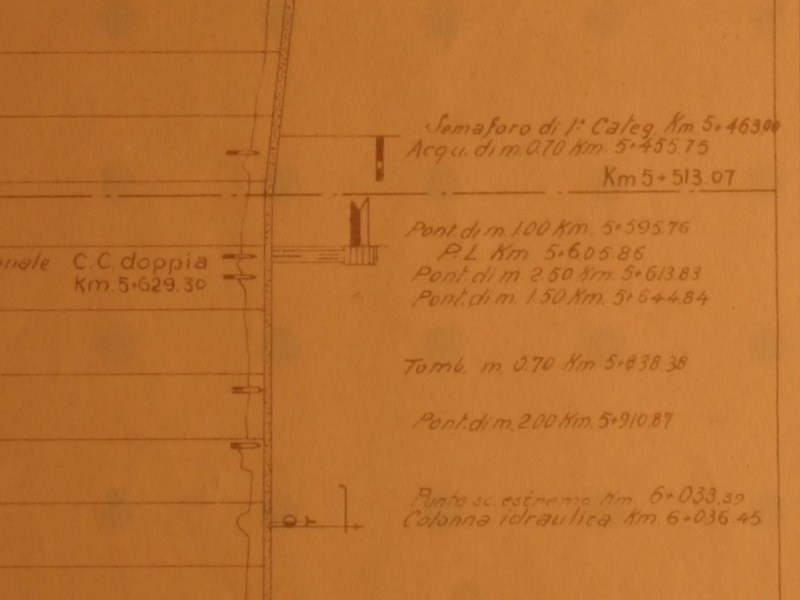 Semaforo di 1ª Categ. Km 5+463.00
Acqu. di m. 0.70 Km. 5+455.75
Km 5+513.07
Pont. di m. 1.00 Km. 5+595.76
P.L. Km 5+605.86
C.C. doppia
Km. 5+629.30
Pont. di m. 2.50 Km. 5+613.83
Pont. di m. 1.50 Km. 5+644.84
Tomb. m. 0.70 Km 5+838.38
Pont. di m. 2.00 Km. 5+910.87
Punta sc. estremo Km. 6+033.39
Colonna idraulica Km. 6+036.45